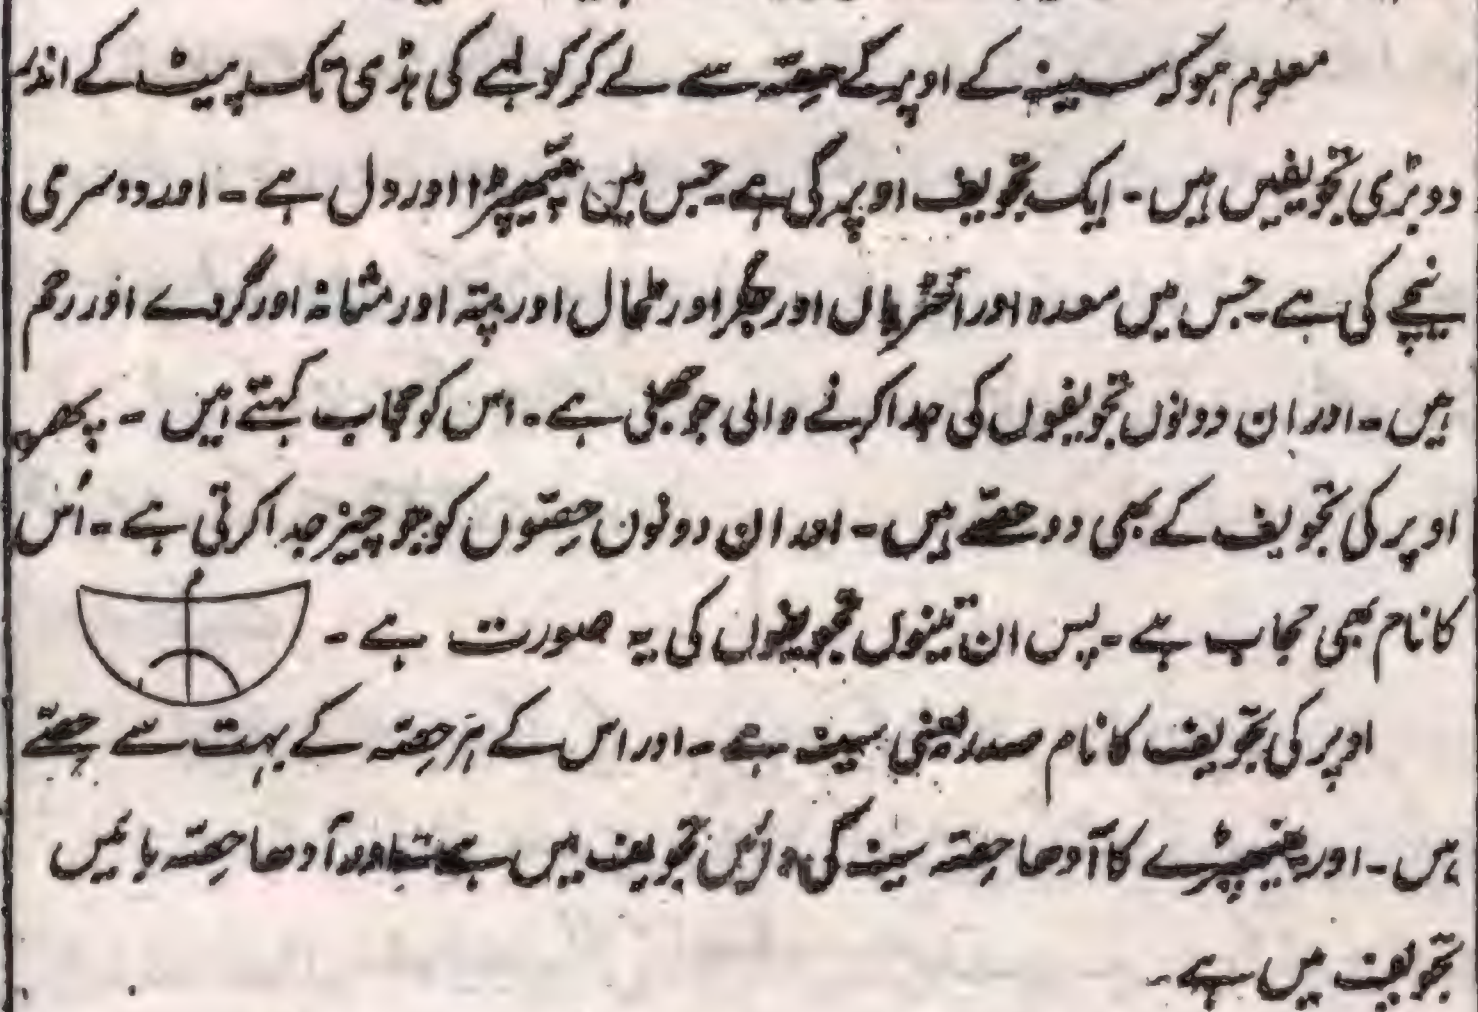 معلوم ہو کہ سینہ کے اوپر کے حصّہ سے لے کر کولہے کی ہڈی تک پیٹ کے اندر
دو بڑی تجویفیں ہیں - ایک تجویف اوپر کی ہے جس میں پھیپھڑا اور دل ہے - اور دوسری
نیچے کی ہے - جس میں معدہ اور انتڑیاں اور جگر اور طحال اور پتہ اور مثانہ اور گردے اور رحم
ہیں - اور ان دونوں تجویفوں کی جدا کرنے والی جو جھلی ہے - اس کو حجاب کہتے ہیں - پھر
اوپر کی تجویف کے بھی دو حصّے ہیں - اور ان دونون حصّوں کو جو چیز جدا کرتی ہے - اُس
کا نام بھی حجاب ہے - پس ان تینوں تجویفوں کی یہ صورت ہے -
اوپر کی تجویف کا نام صدر یعنی سینہ ہے - اور اس کے ہر حصّہ کے بہت سے حصّے
ہیں - اور پھیپھڑے کا آدھا حصّہ سینہ کی دائیں تجویف میں ہے اور آدھا حصّہ بائیں
تجویف میں ہے -